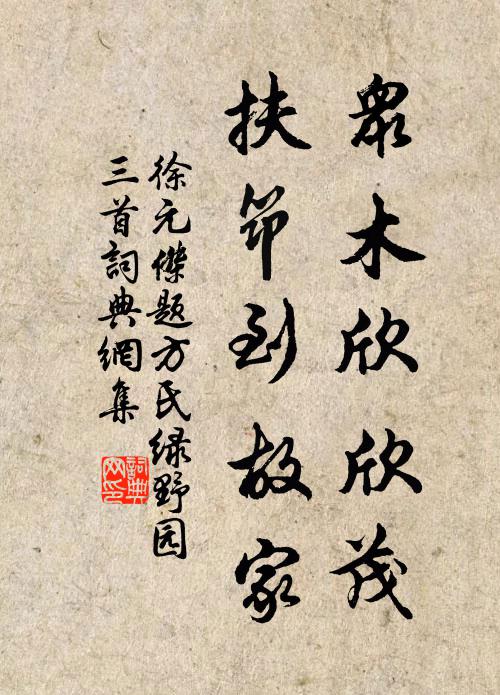 眾木欣欣茂
扶筇到故家
徐元傑題方氏绿野园
三首詞典網集
詞典
网印